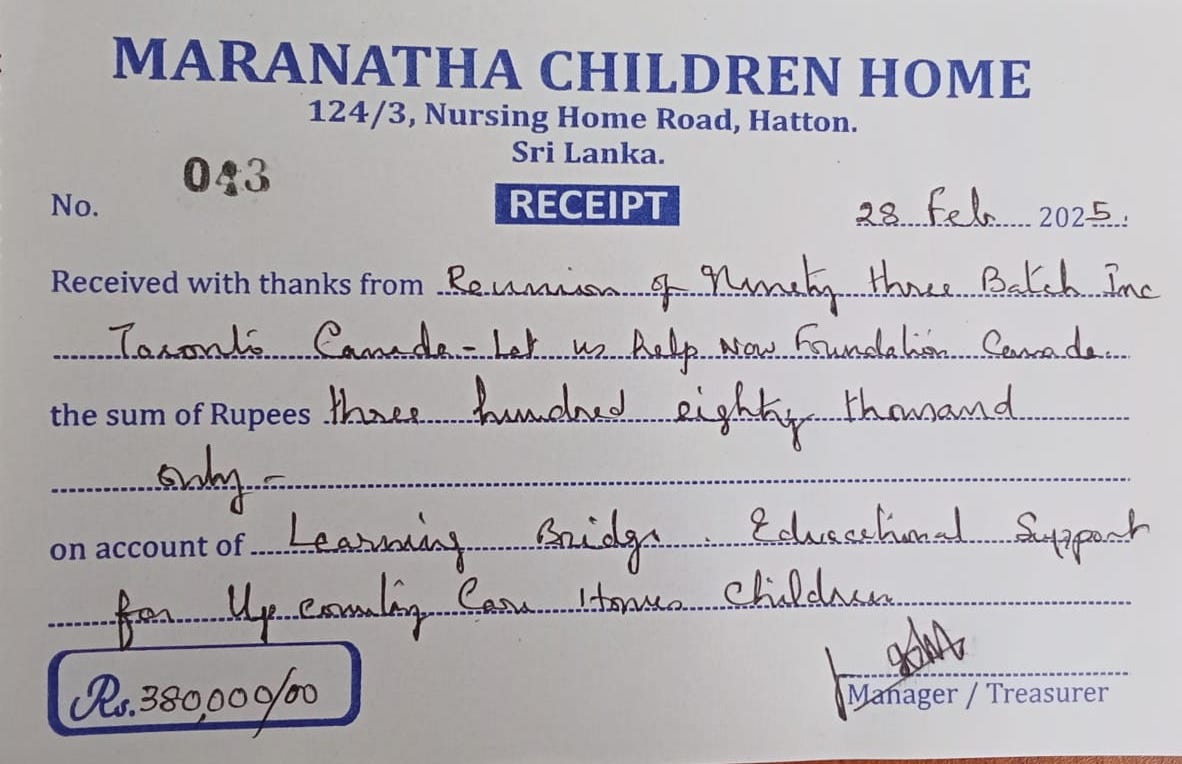 MARANATHA CHILDREN HOME
124/3, Nursing Home Road, Hatton.
Sri Lanka.
No. 043
RECEIPT
28 Feb 2025.
Received with thanks from Reunion of Ninety three Batch Inc
Toronto Canada - Let us help Now Foundation Canada.
the sum of Rupees three hundred eighty thousand
only -
on account of Learning Bridge. Educational Support
for Up coming Care Homes Children
Rs. 380,000/00
Manager / Treasurer